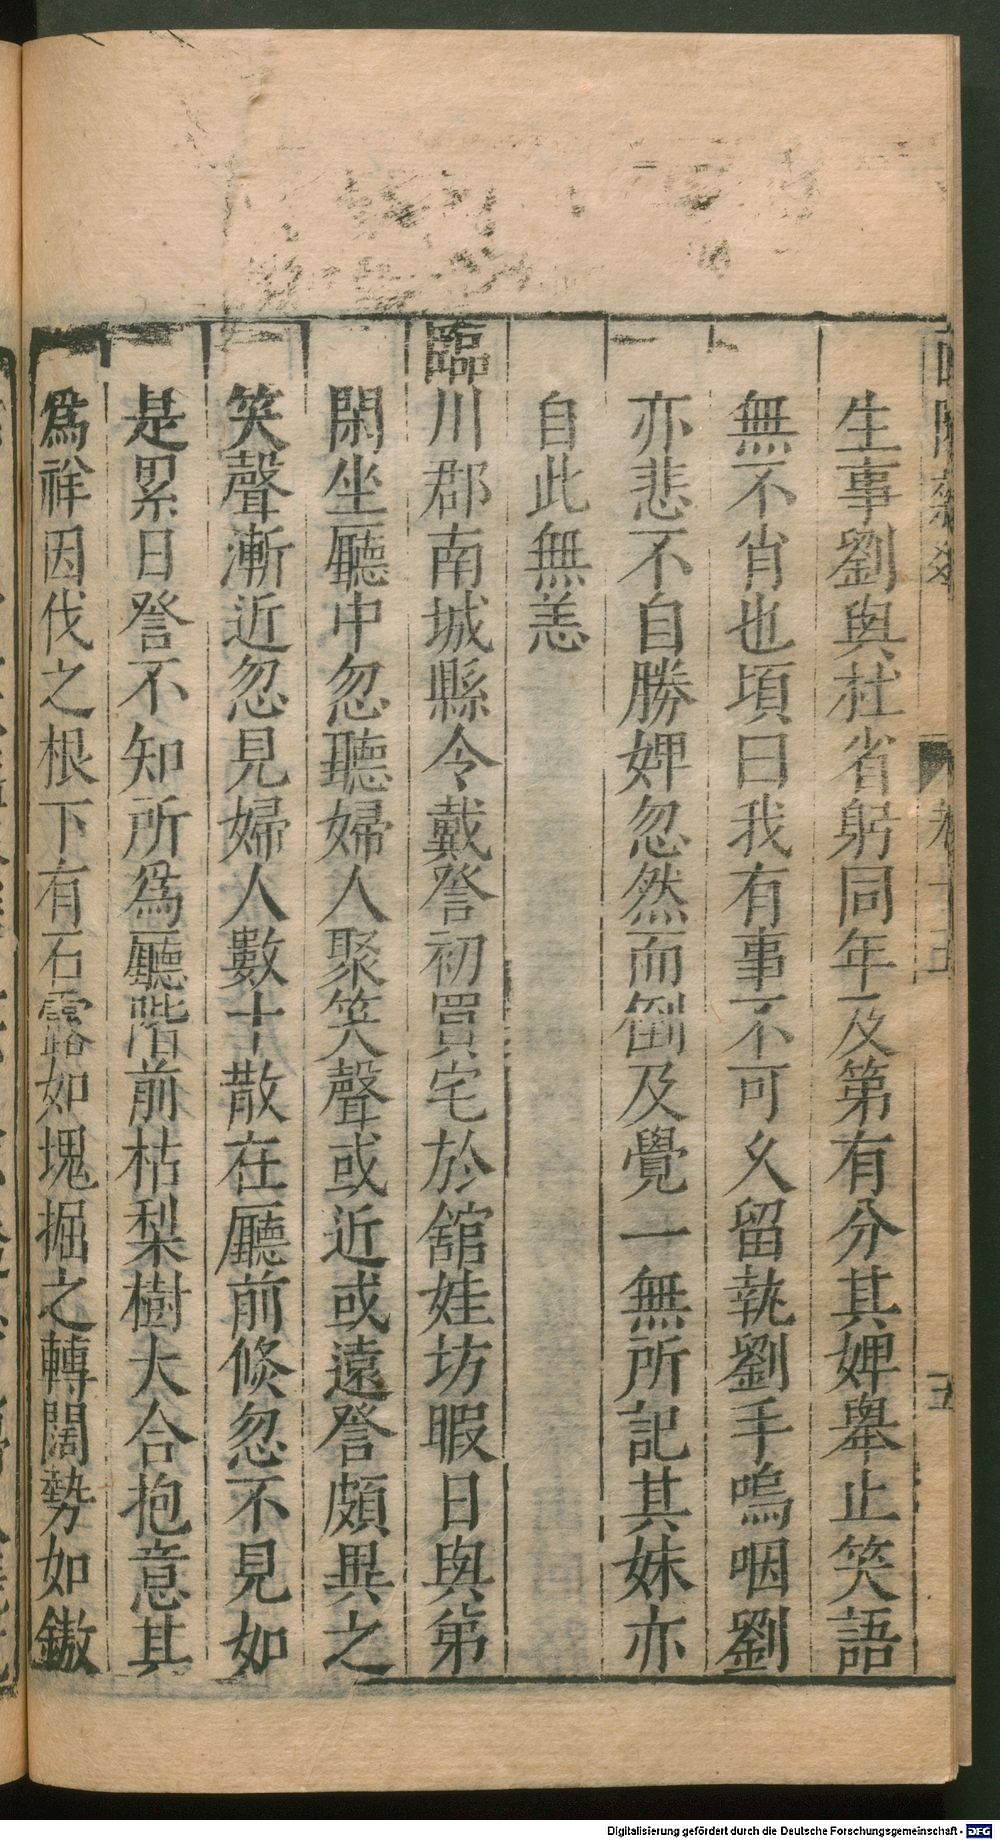 生事劉與杜省躬同年及第有分其婢舉止笑語
無不肖也頃曰我有事不可久留執劉手嗚咽劉
亦悲不自勝婢忽然而倒及覺一無所記其妹亦
自此無恙
臨川郡南城縣令戴詧初買宅於館娃坊暇日與弟
閑坐廳中忽聽婦人聚笑聲或近或遠詧頗異之
笑聲漸近忽見婦人數十散在廳前倐忽不見如
是累日詧不知所爲廳階前枯梨樹大合抱意其
爲祥因伐之根下有石露如塊掘之轉闊勢如鏊
卷十五
五
Digitalisierung gefördert durch die Deutsche Forschungsgemeinschaft - DFG